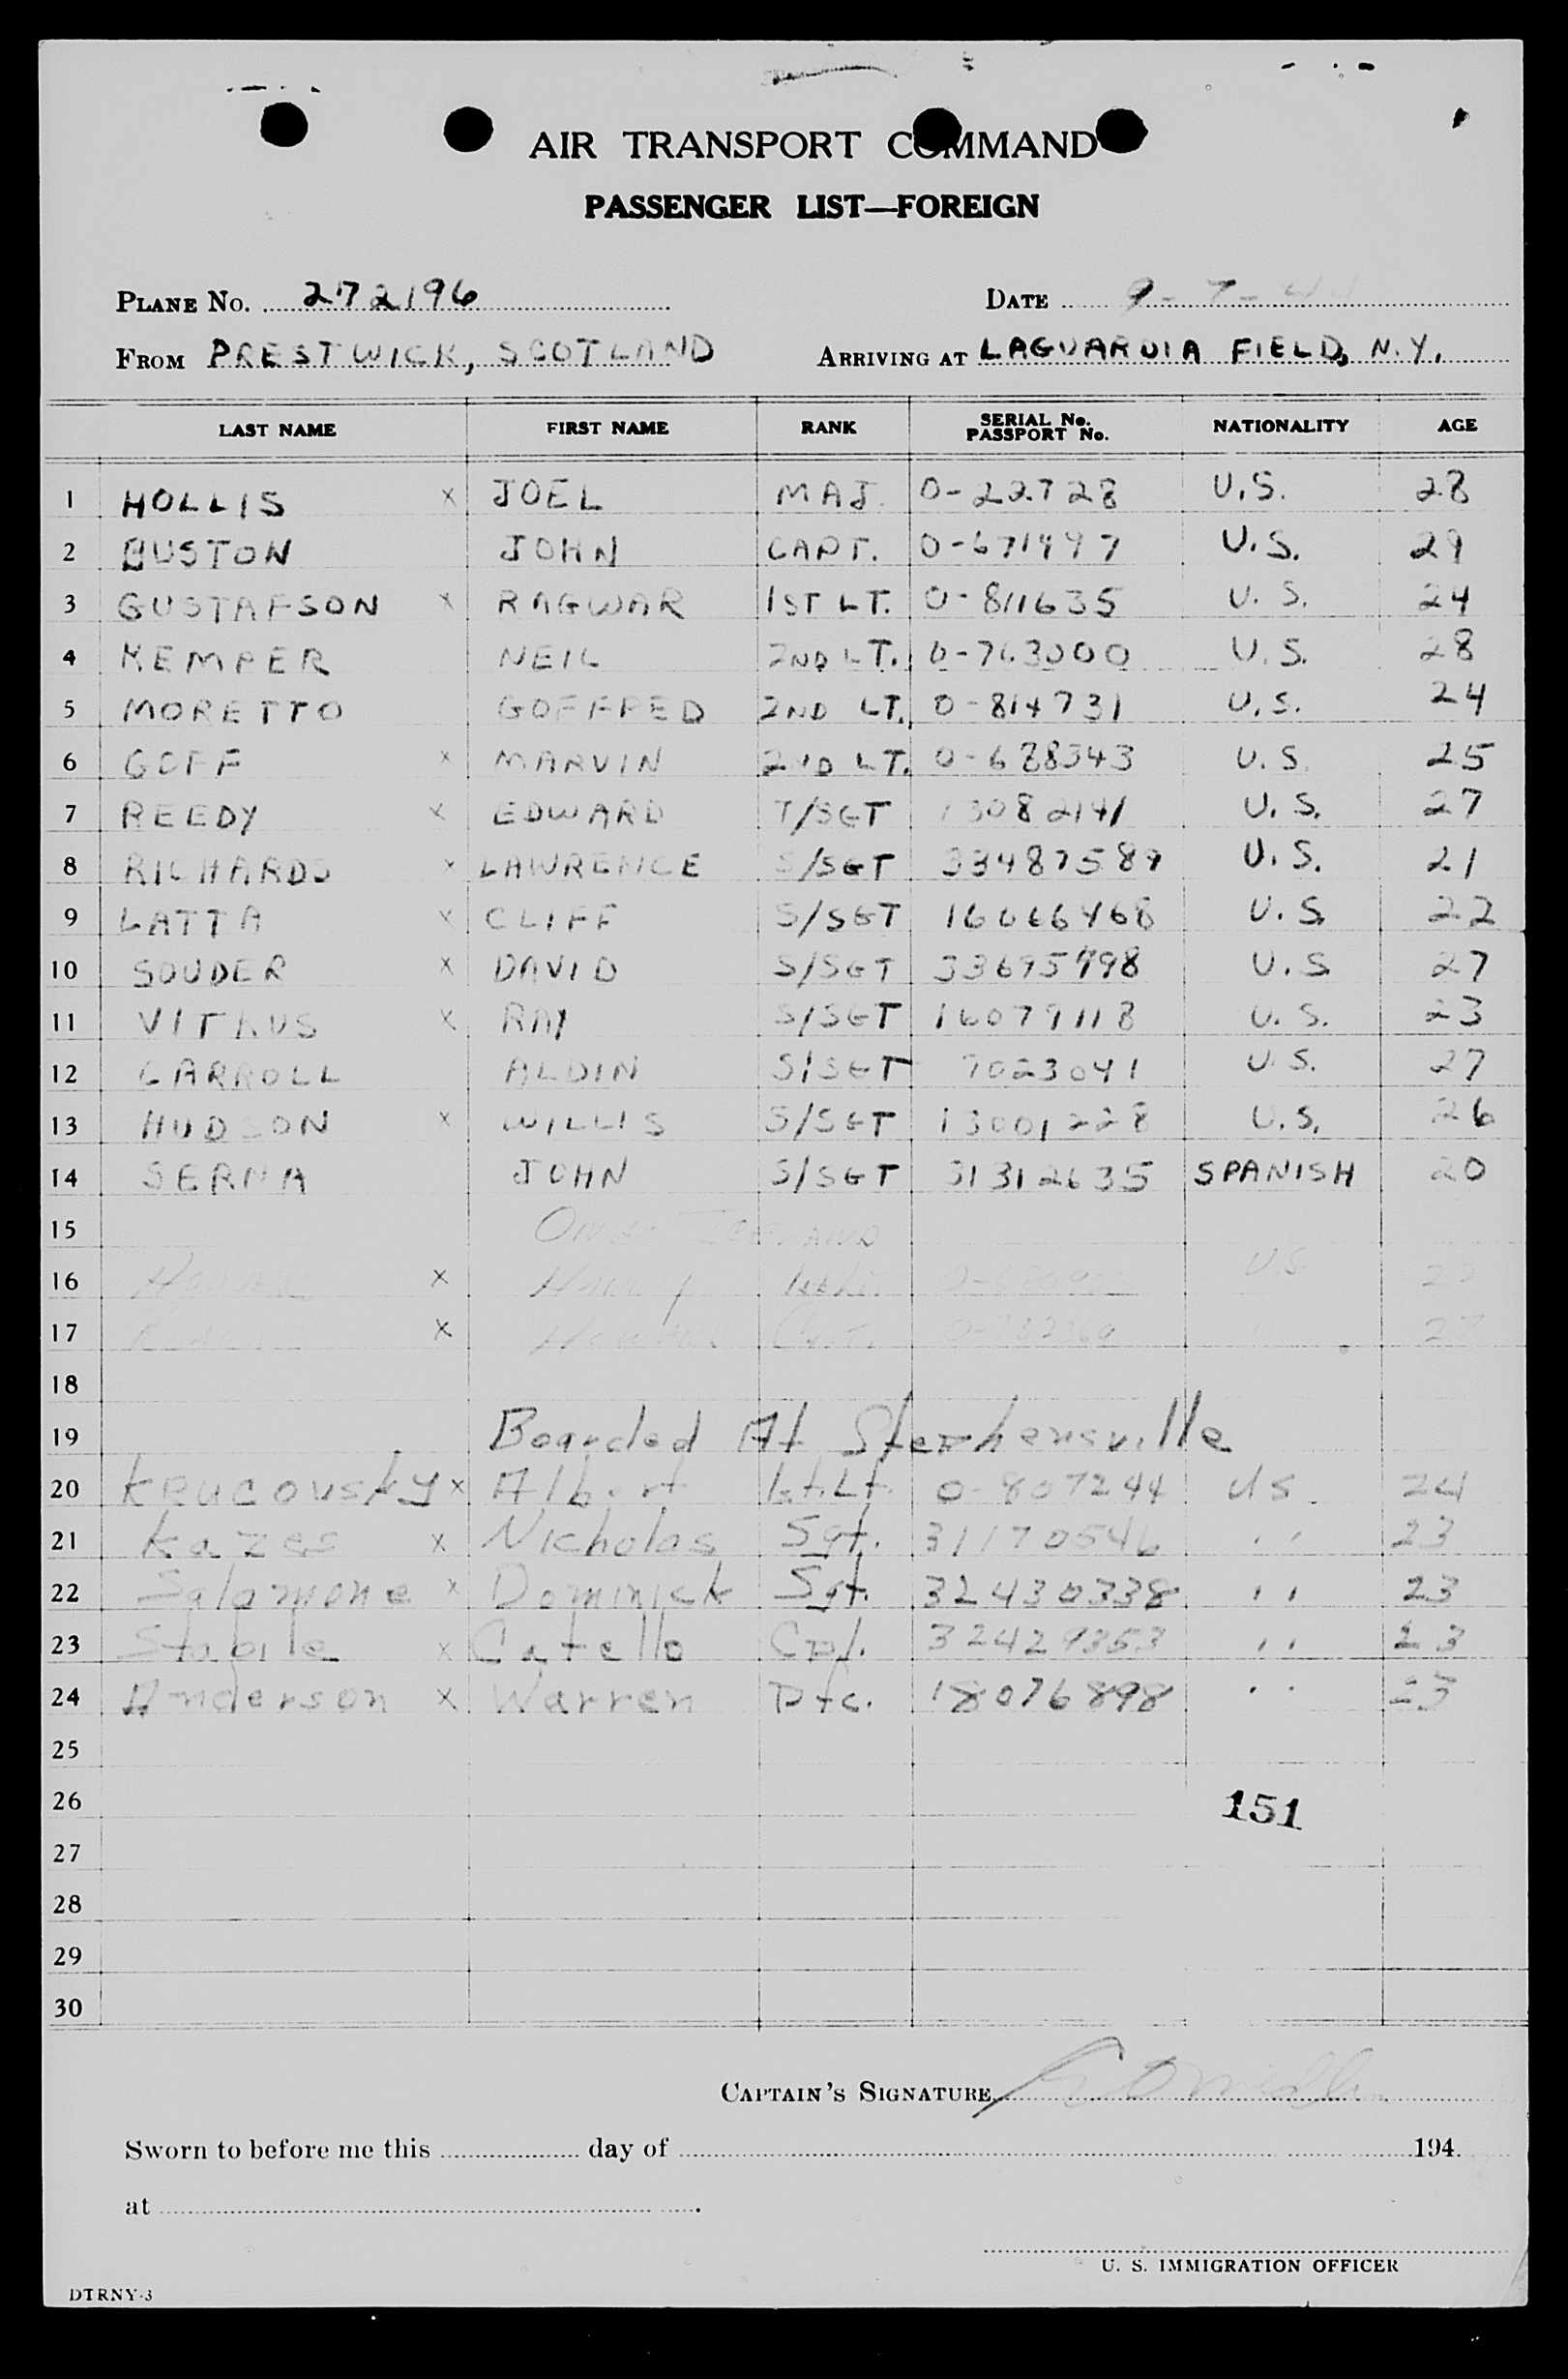 AIR TRANSPORT COMMAND
PASSENGER LIST—FOREIGN
PLANE No. 272196 DATE 9-7-44
FROM PRESTWICK, SCOTLAND ARRIVING AT LAGUARDIA FIELD, N.Y.
LAST NAME FIRST NAME RANK SERIAL No. PASSPORT No. NATIONALITY AGE
1 HOLLIS x JOEL MAJ. O-22728 U.S. 28
2 HUSTON JOHN CAPT. O-671497 U.S. 29
3 GUSTAFSON x RAGWAR 1ST LT. O-811635 U.S. 24
4 KEMPER NEIL 2ND LT. O-763000 U.S. 28
5 MORETTO GOFFRED 2ND LT. O-814731 U.S. 24
6 GOFF x MARVIN 2ND LT. O-688343 U.S. 25
7 REEDY x EDWARD T/SGT 13082141 U.S. 27
8 RICHARDS x LAWRENCE S/SGT 33487589 U.S. 21
9 LATTA x CLIFF S/SGT 16066468 U.S 22
10 SOUDER x DAVID S/SGT 33695498 U.S 27
11 VITKUS x RAY S/SGT 16079118 U.S. 23
12 CARROLL ALDIN S/SGT 7023041 U.S. 27
13 HUDSON x WILLIS S/SGT 13001228 U.S. 26
14 SERNA JOHN S/SGT 31312635 SPANISH 20
15
16 x 1st Lt. U.S
17 x Capt. 27
18
19 Boarded At Stephensville
20 KRUCOVSKY x Albert 1st.Lt. O-807244 US 24
21 Kazes x Nicholas Sgt. 31170546 '' 23
22 Salamone x Dominick Sgt. 32430338 '' 23
23 Stabile x Catello Cpl. 32429353 '' 23
24 Anderson x Warren Pfc. 18076898 '' 25
25
26 151
27
28
29
30
CAPTAIN'S SIGNATURE
Sworn to before me this day of 194
at .
U. S. IMMIGRATION OFFICER
DTRNY-3